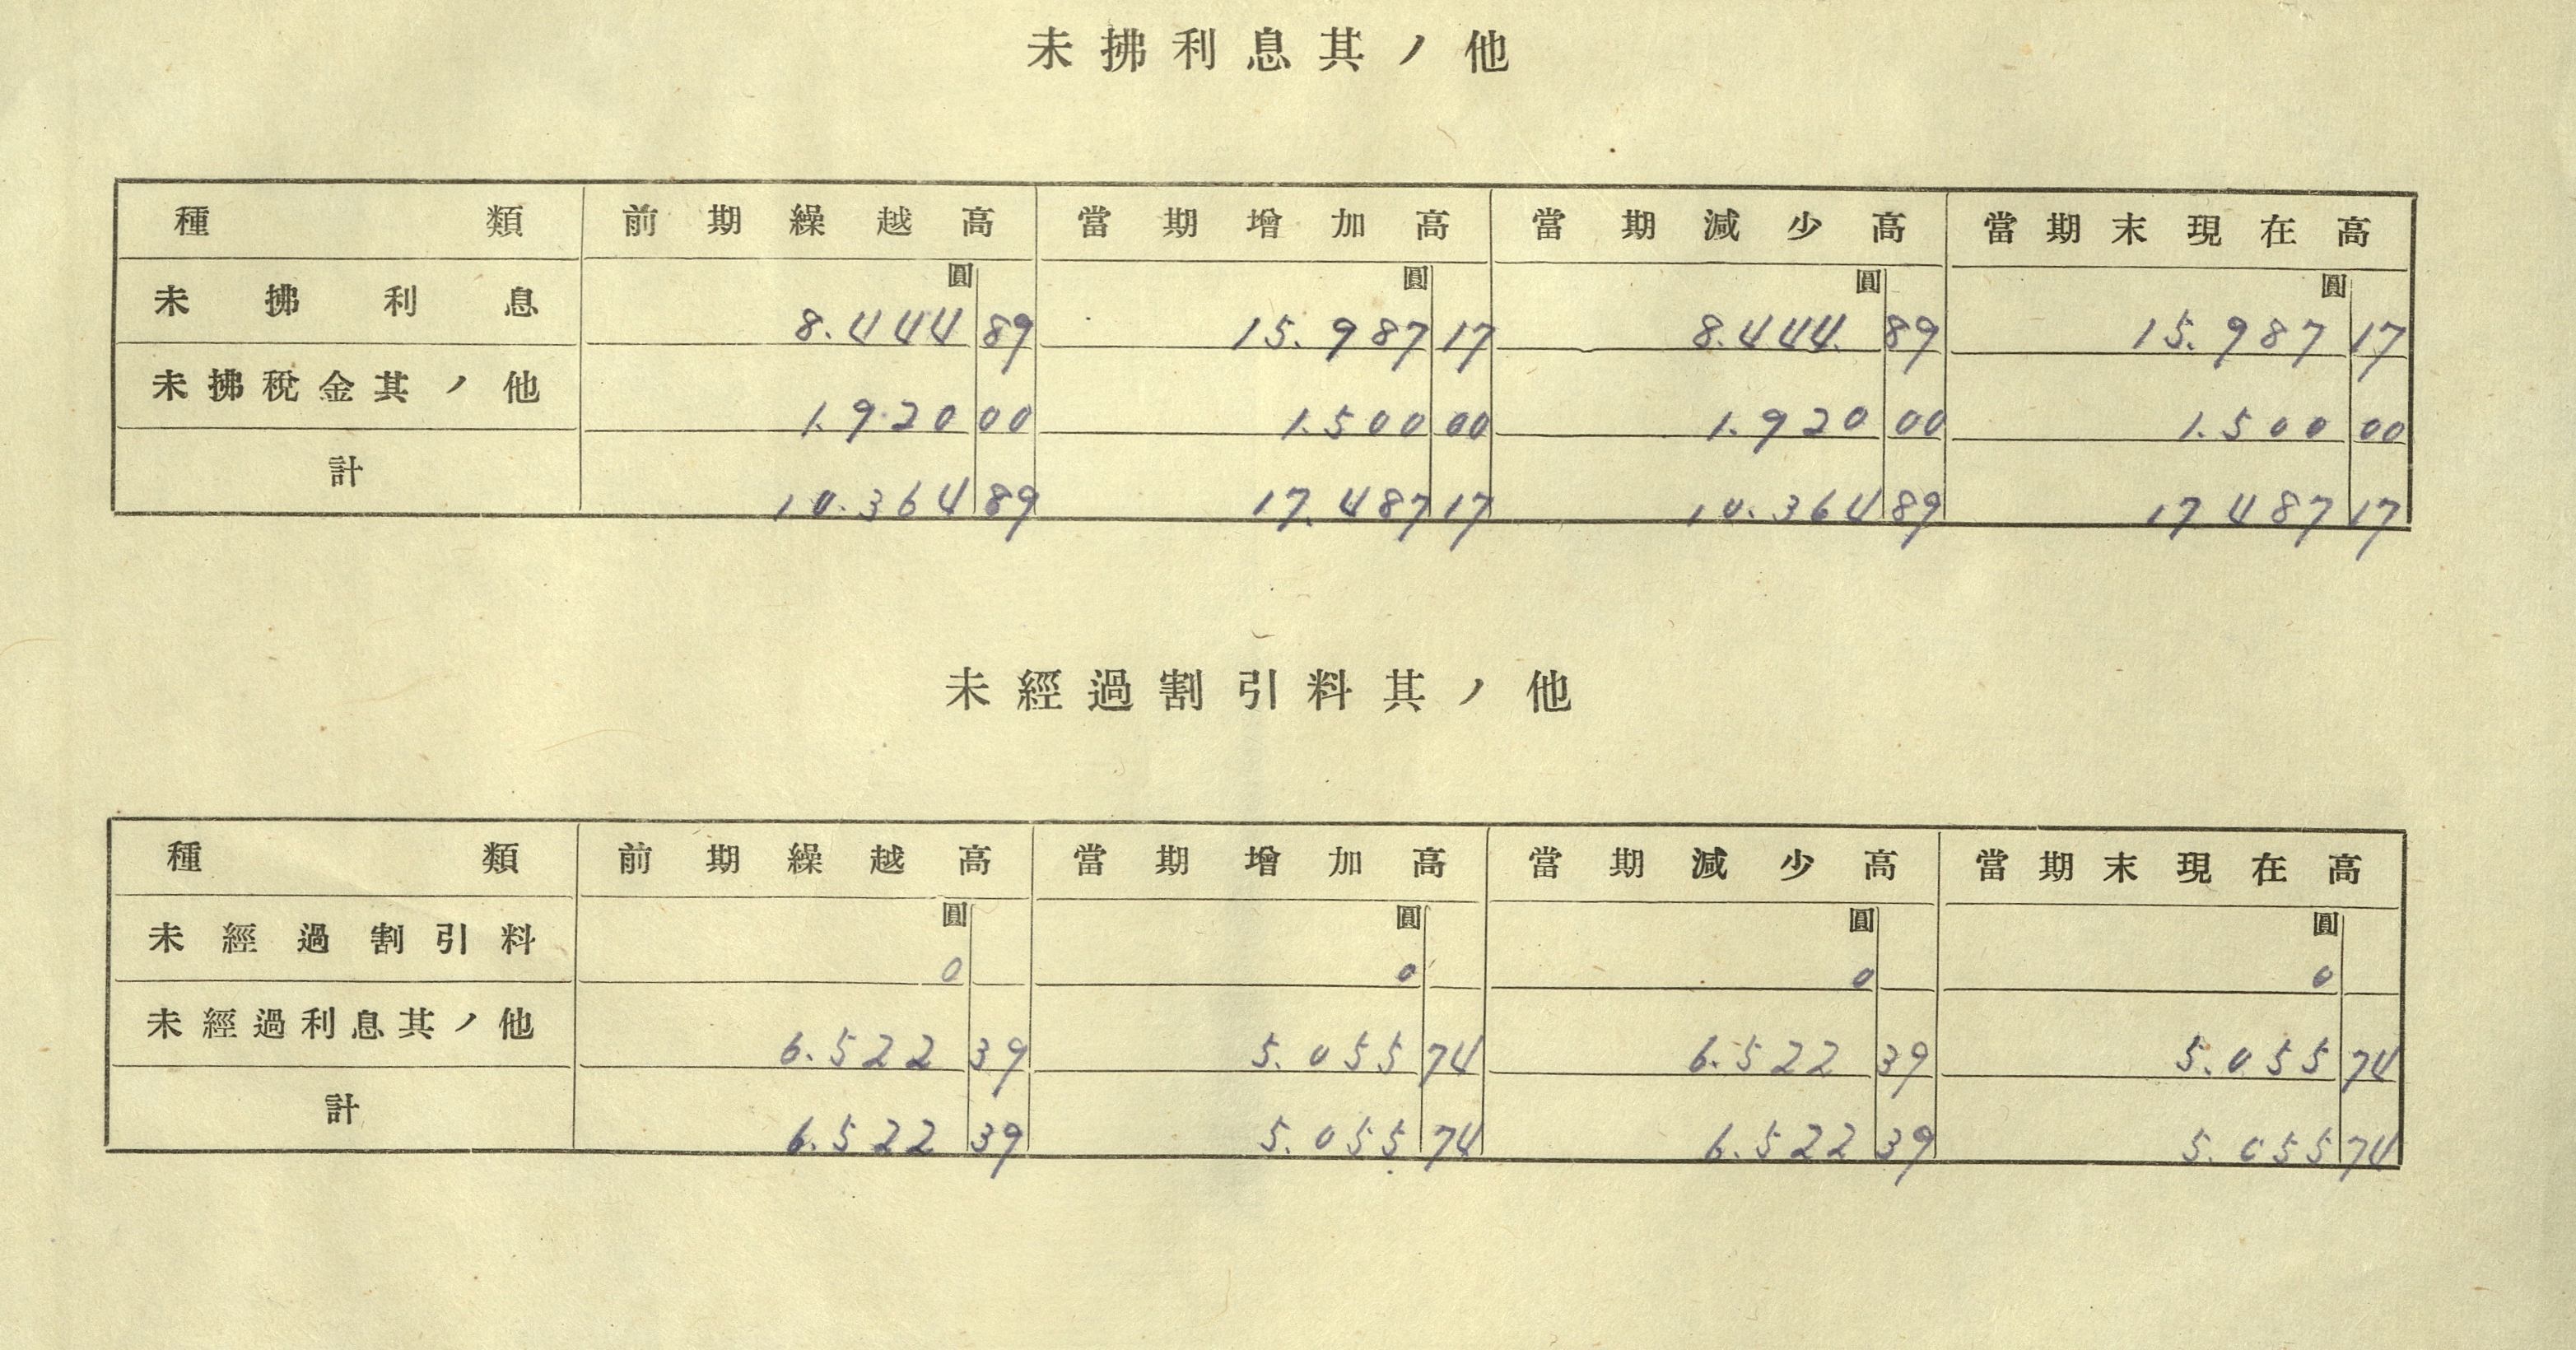 未拂利息其ノ他
種類 前期繰越高 當期增加高 當期減少高 當期末現在高
圓 圓 圓 圓
未拂利息 8.444 89 15.987 17 8.444. 89 15.987 17
未拂稅金其ノ他 1.920 00 1.500 00 1.920 00 1.500 00
計 10.364 89 17.487 17 10.364 89 17 487 17
未經過割引料其ノ他
種類 前期繰越高 當期增加高 當期減少高 當期末現在高
圓 圓 圓 圓
未經過割引料 0 0 0 0
未經過利息其ノ他 6.522 39 5.055 74 6.522 39 5.055 74
計 6.522 39 5.055 74 6.522 39 5.055 74